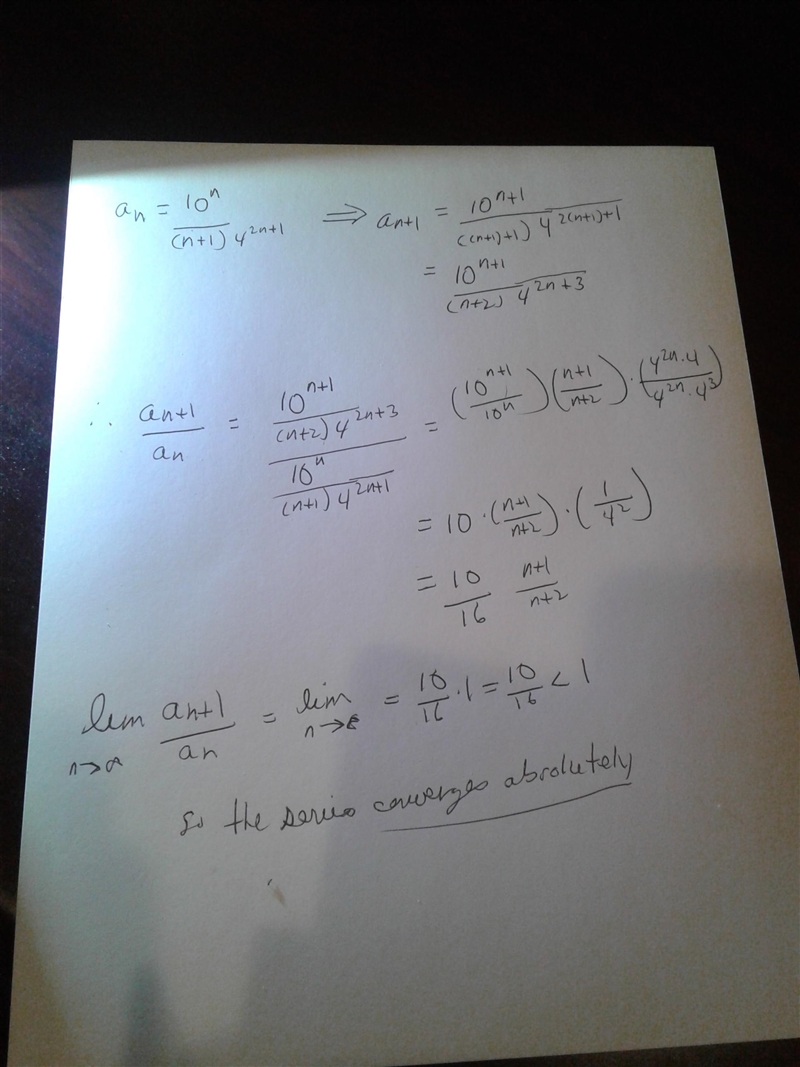 aₙ = 10ⁿ / ((n+1) 4^(2n+1)) ⇒ aₙ₊₁ = 10^(n+1) / (((n+1)+1) 4^(2(n+1)+1))
= 10^(n+1) / ((n+2) 4^(2n+3))
∴ aₙ₊₁ / aₙ = (10^(n+1) / ((n+2) 4^(2n+3))) / (10ⁿ / ((n+1) 4^(2n+1))) = (10^(n+1) / 10ⁿ) ((n+1) / (n+2)) · ((4^(2n) · 4) / (4^(2n) · 4³))
= 10 · ((n+1) / (n+2)) · (1 / 4²)
= 10/16 (n+1)/(n+2)
lim n→∞ aₙ₊₁ / aₙ = lim n→∞ = 10/16 · 1 = 10/16 < 1
so the series converges absolutely